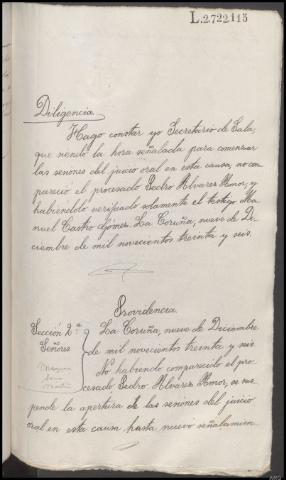 L.2.722.113
Diligencia.
Hago constar yo Secretario de Sala,
que siendo la hora señalada para comenzar
las sesiones del juicio oral en esta causa, no com
pareció el procesado Pedro Alvarez Amor, y
habiéndolo verificado solamente el testigo Ma
nuel Castro Gómez. La Coruña, nueve de Di-
ciembre de mil novecientos treinta y seis.
Providencia.
Sección 2ª La Coruña, nueve de Diciembre
Señores de mil novecientos treinta y seis
No habiendo comparecido el pro
cesado Pedro Alvarez Amor, se sus
pende la apertura de las sesiones del juicio
oral en esta causa hasta nuevo señalamien